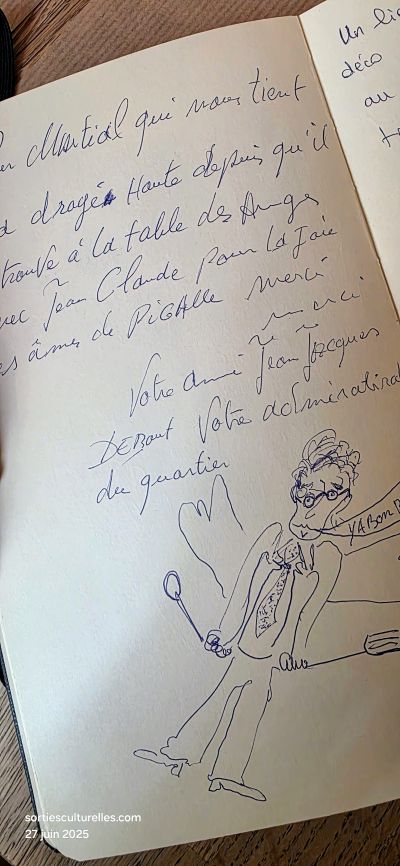 Martial qui nous tient
dragée Haute depuis qu'il
trouve à la table des Anges
avec Jean Claude pour la Joie
es âmes de PiGAlle merci
merci
Votre ami Jean Jacques
DEBout Votre admiratirat
du quartier
YABon B
Un li
déco
au
sortiesculturelles.com
27 juin 2025